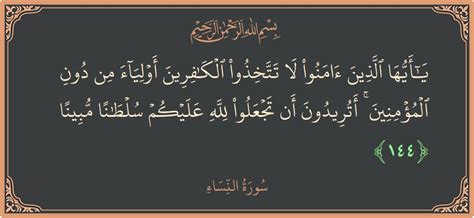 بِسْمِ اللَّهِ الرَّحْمَٰنِ الرَّحِيمِ
يَـٰٓأَيُّهَا ٱلَّذِينَ ءَامَنُوا۟ لَا تَتَّخِذُوا۟ ٱلْكَـٰفِرِينَ أَوْلِيَآءَ مِن دُونِ
ٱلْمُؤْمِنِينَ ۚ أَتُرِيدُونَ أَن تَجْعَلُوا۟ لِلَّهِ عَلَيْكُمْ سُلْطَـٰنًا مُّبِينًا
﴿١٤٤﴾
سُورَةُ النِّسَاءِ